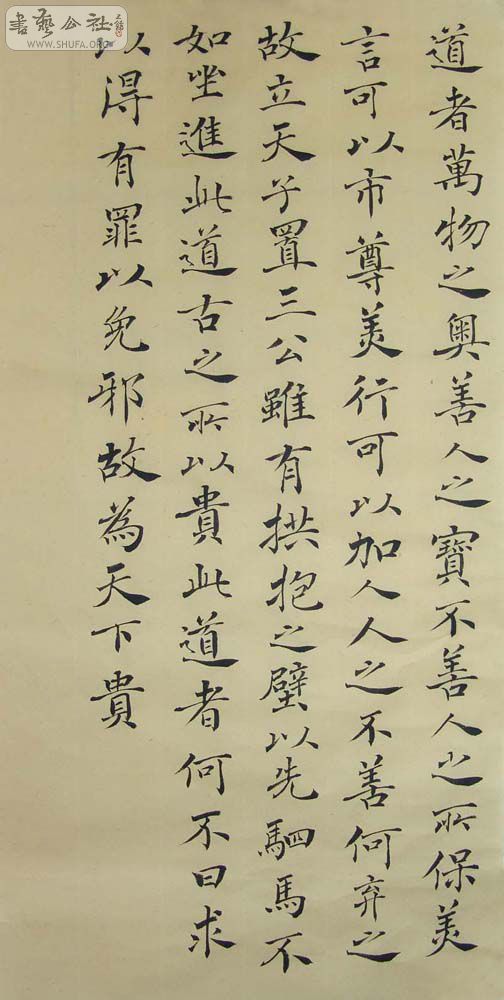 道者萬物之奥善人之寶不善人之所保美
言可以市尊美行可以加人人之不善何弃之
故立天子置三公雖有拱抱之璧以先駟馬不
如坐進此道古之所以貴此道者何不曰求
以得有罪以免邪故為天下貴
書藝公社
WWW.SHUFA.ORG